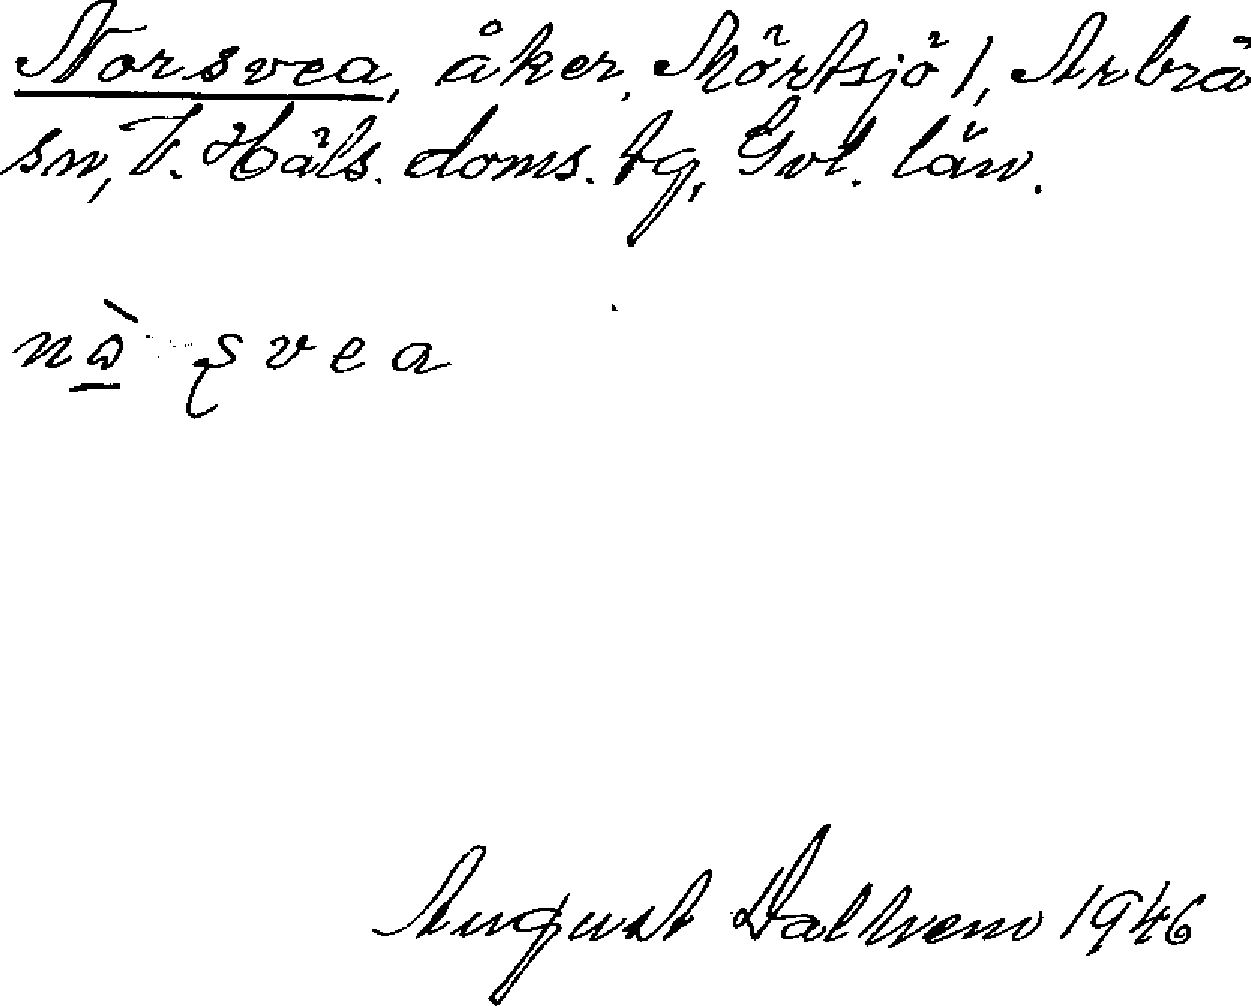 Norsvea, åker, Mörtsjö 1, Arbrå
sn, V. Häls. doms. tg, Gvl. län.
nå̀ svea
August Dalhem 1946